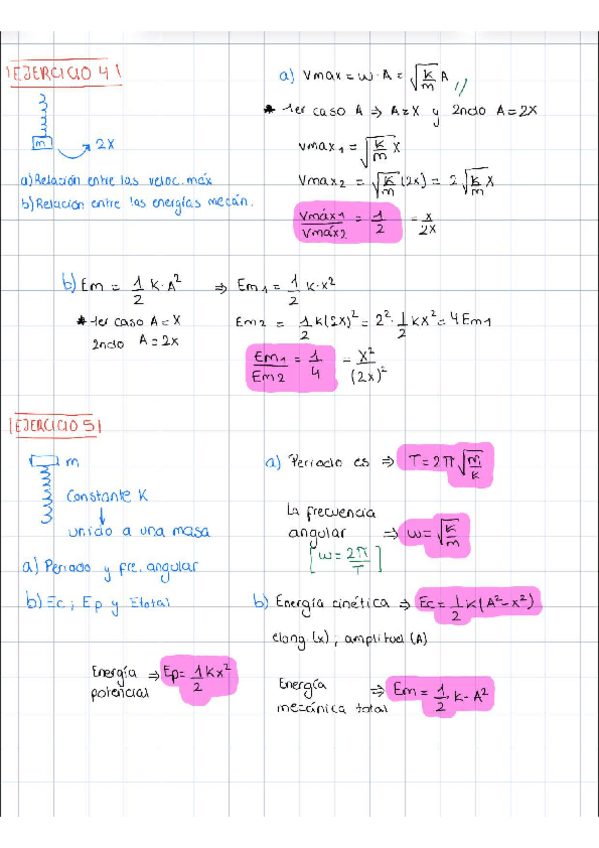 ¡EJERCICIO 4!
m → 2X
a) Relación entre las veloc. máx
b) Relación entre las energías mecán.
a) Vmax = ω · A = √(K/m) A //
* 1er caso A ⇒ A = X y 2ndo A = 2X
Vmax1 = √(K/m) X
Vmax2 = √(K/m) (2x) = 2√(K/m) X
Vmáx1/Vmáx2 = 1/2 = X/2X
b) Em = 1/2 K · A² ⇒ Em1 = 1/2 K · x²
* 1er caso A = X
2ndo A = 2x
Em2 = 1/2 K(2X)² = 2² · 1/2 KX² = 4 Em1
Em1/Em2 = 1/4 = X²/(2x)²
¡EJERCICIO 5!
m
Constante K
↓
unido a una masa
a) Periodo y fre. angular
b) Ec; Ep y Etotal
a) Periodo es ⇒ T = 2π √(m/K)
La frecuencia
angular ⇒ ω = √(K/m)
[ω = 2π/T]
b) Energía cinética ⇒ Ec = 1/2 K(A² - x²)
elong (x); amplitud (A)
Energía
potencial ⇒ Ep = 1/2 Kx²
Energía
mecánica total ⇒ Em = 1/2 · K · A²